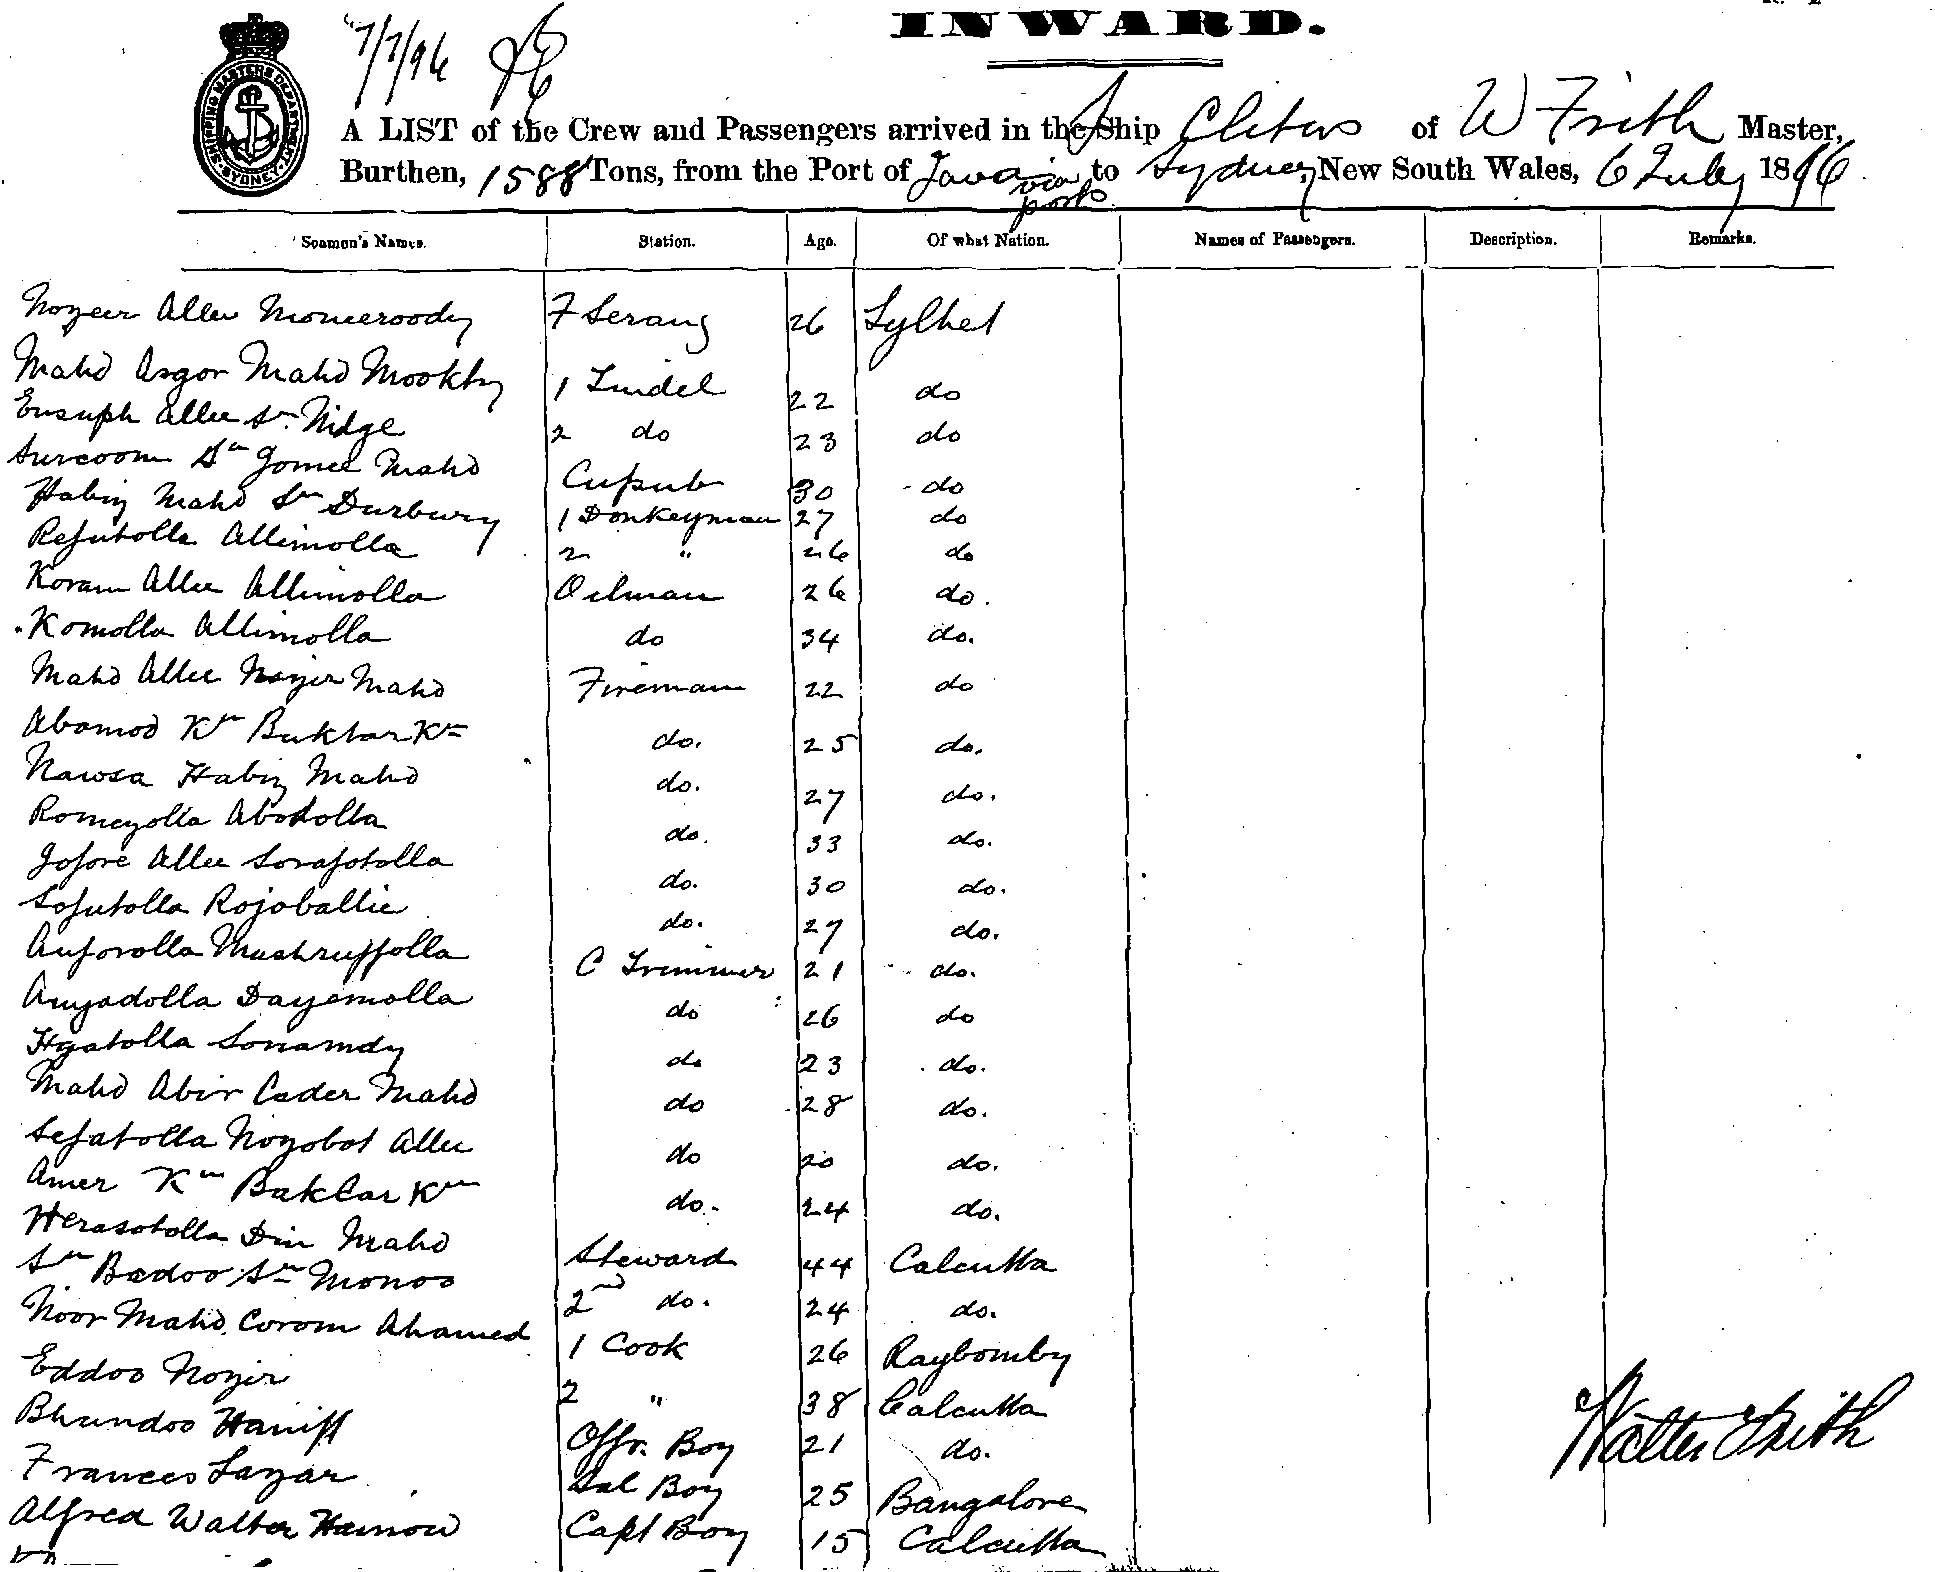 INWARD.
7/7/96
SHIPPING MASTERS DEPARTMENT SYDNEY
A LIST of the Crew and Passengers arrived in the S Ship Clitus of W Frith Master,
Burthen, 1588 Tons, from the Port of Java via ports to Sydney, New South Wales, 6 July 1896
Seamen's Names. Station. Age. Of what Nation. Names of Passengers. Description. Remarks.
Nozeer Allee Momeeroody F Serang 26 Sylhet
Mahd Asgor Mahd Mookby 1 Tindel 22 do
Eusuph Allee Sk Nidge 2 do 23 do
Surcoom Sk Gomee Mahd Cupub 30 do
Habiz Mahd Sk Durbury 1 Donkeyman 27 do
Refutolla Allimolla 2 " 26 do
Koram Allee Allimolla Oilman 26 do.
Komolla Allimolla do 34 do.
Mahd Allee Nozir Mahd Fireman 22 do
Abamod Kn Buktar Kn do. 25 do.
Nawsa Habiz Mahd do. 27 do.
Romezolla Abotolla do. 33 do.
Jofore Allee Sorafotolla do. 30 do.
Sofutolla Rojoballie do. 27 do.
Auforolla Mushruffolla C Trimmer 21 do.
Amjadolla Dayemolla do 26 do
Hyatolla Sonamdy do 23 do.
Mahd Abir Cader Mahd do 28 do.
Sefatolla Nozobot Allee do 20 do.
Amer Kn Baktar Kn do. 24 do.
Herasotolla Din Mahd
Sk Badoo Sk Monoo Steward 44 Calcutta
Noor Mahd Corom Ahamed 2nd do. 24 do.
Eddoo Nozir 1 Cook 26 Raybomby
Bhundoo Haniff 2 " 38 Calcutta
Frances Lazar Offr. Boy 21 do.
Alfred Walter Sal Boy 25 Bangalore
Capt Boy 15 Calcutta
Walter Frith